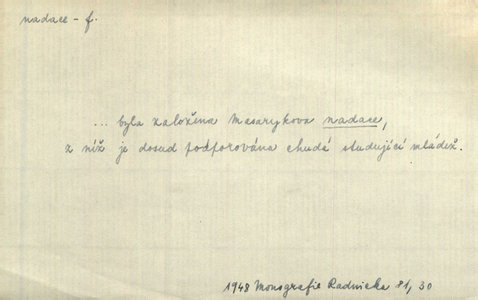 nadace - f.
... byla založena Masarykova nadace,
z níž je dosud podporována chudá studující mládež.
1948 Monografie Radnicka 81, 30